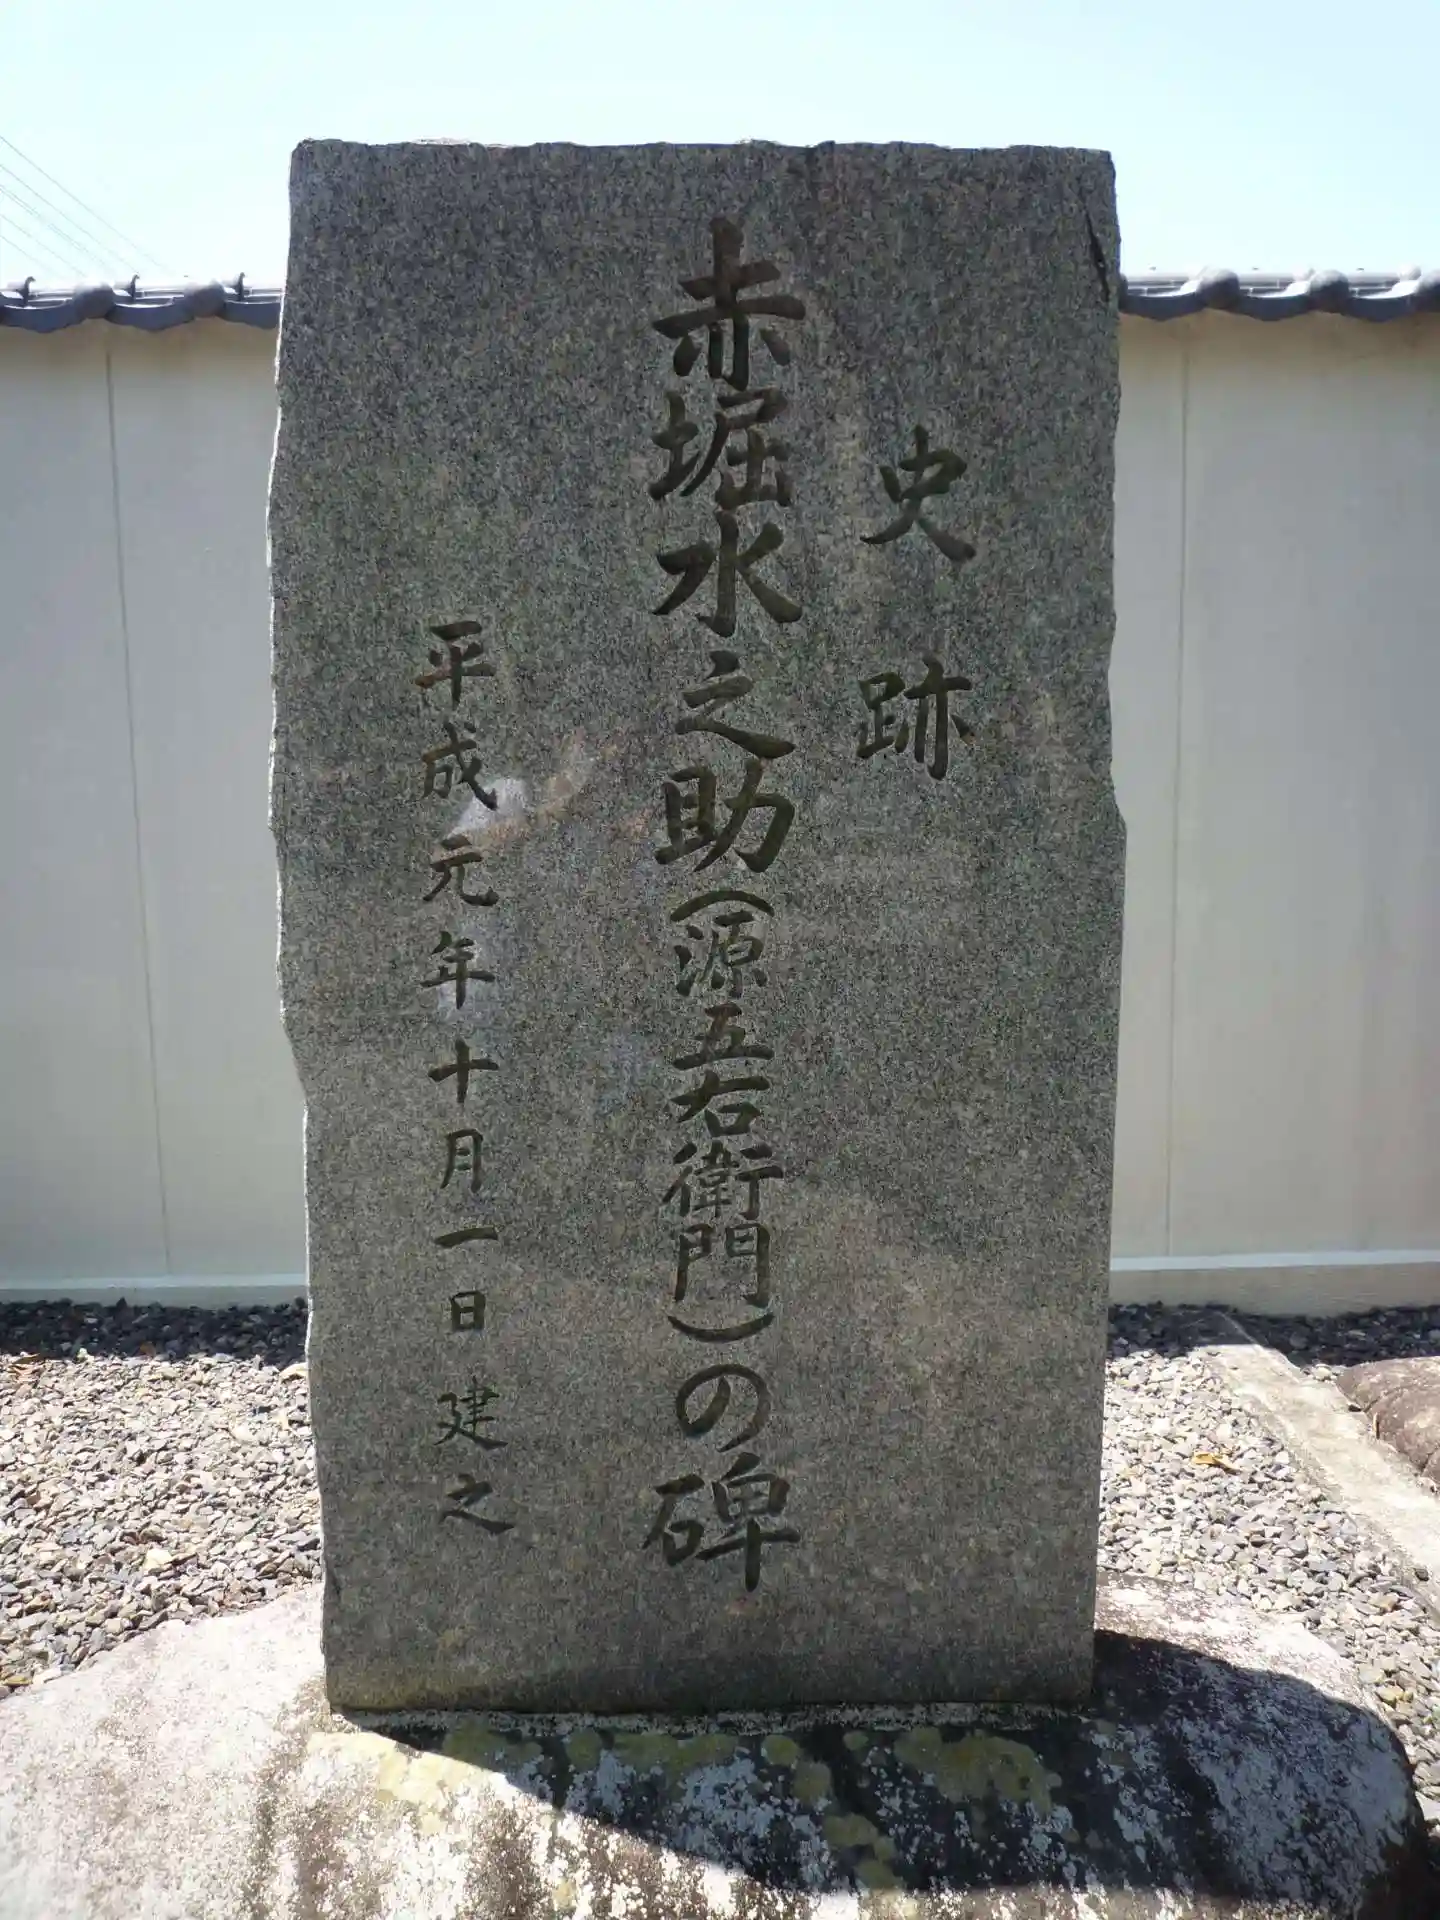 史跡
赤堀水之助(源五右衛門)の碑
平成元年十月一日建之